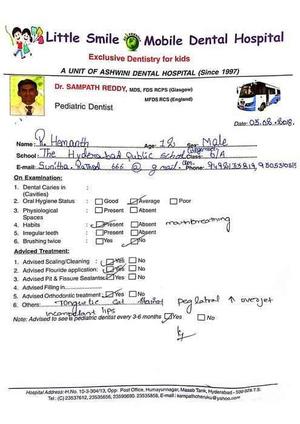 Little Smile Mobile Dental Hospital
Exclusive Dentistry for kids
A UNIT OF ASHWINI DENTAL HOSPITAL (Since 1997)
Dr. SAMPATH REDDY, MDS, FDS RCPS (Glasgow)
MFDS RCS (England)
Pediatric Dentist
Date: 03.08.2018
Name: P. Hemanth Age: 12 Sex: Male
School: The Hyderabad Public school Class: 6/A
E-mail: Sunitha. 666 @ gmail. Ph:
On Examination:
1. Dental Caries in (Cavities) :
2. Oral Hygiene Status : Good Average Poor
3. Physiological Spaces : Present Absent
4. Habits : Present Absent mouthbreathing
5. Irregular teeth : Present Absent
6. Brushing twice : Yes No
Adviced Treatment:
1. Advised Scaling/Cleaning : Yes No
2. Advised Flouride application: Yes No
3. Advised Pit & Fissure Sealants: Yes No
4. Advised Filling in
5. Advised Orthodontic treatment : Yes No
6. Others: Tongue tie peg lateral ↑ overjet
incompetent lips
Note: Advised to see pediatric dentist every 3-6 months Yes No
Hospital Address: H.No. 10-3-304/13, Opp. Post Office, Humayunnagar, Masab Tank, Hyderabad
Tel: (C) 23537612, 23535656, 23590690, 23535858, E-mail: